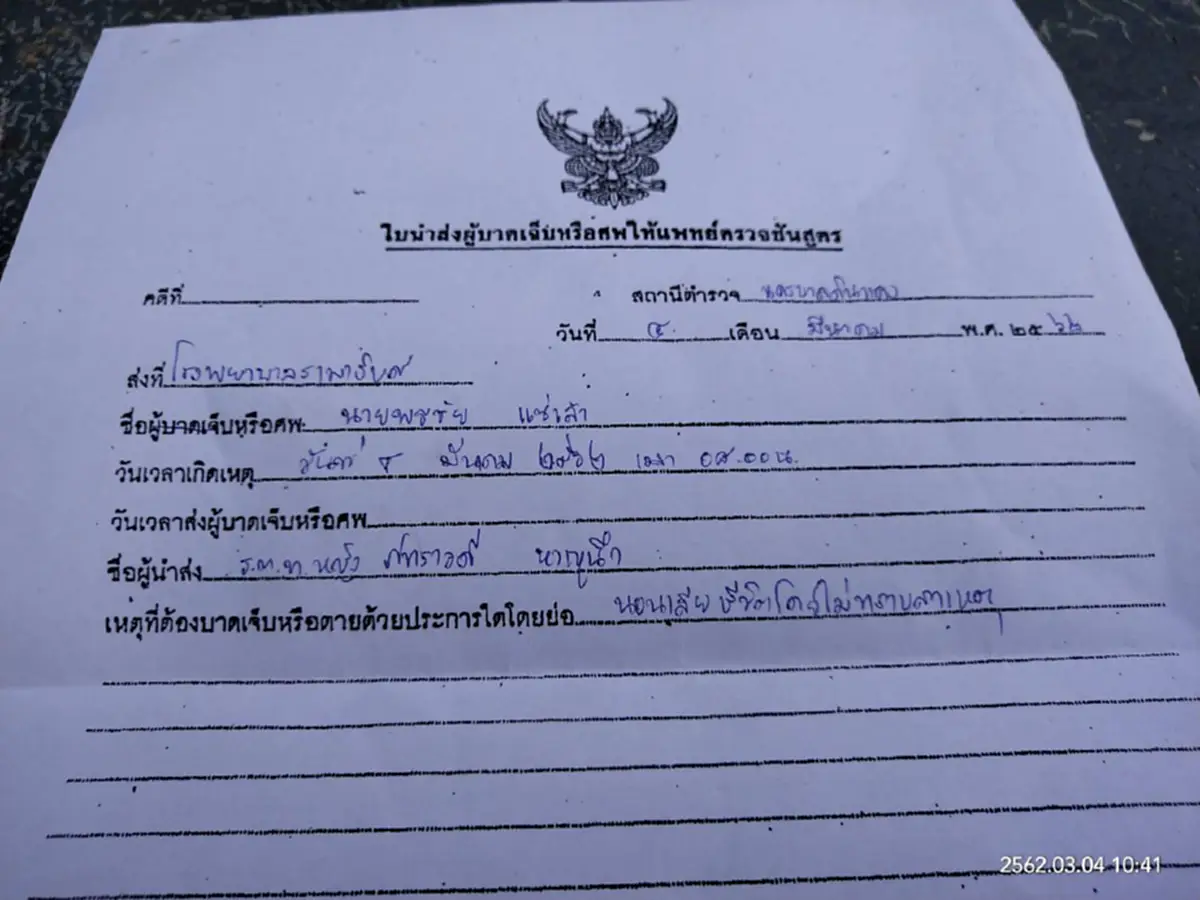 ใบนำส่งผู้บาดเจ็บหรือศพให้แพทย์ตรวจชันสูตร
คดีที่ สถานีตำรวจ นครบาลดินแดง
วันที่ ๔ เดือน มีนาคม พ.ศ. ๒๕๖๒
ส่งที่ โรงพยาบาลรามาธิบดี
ชื่อผู้บาดเจ็บหรือศพ นายพรชัย แซ่เล้า
วันเวลาเกิดเหตุ วันที่ ๔ มีนาคม ๒๕๖๒ เวลา ๐๘.๐๐น.
วันเวลาส่งผู้บาดเจ็บหรือศพ
ชื่อผู้นำส่ง ร.ต.ท.หญิง ภัทราวดี
เหตุที่ต้องบาดเจ็บหรือตายด้วยประการใดโดยย่อ นอนเสียชีวิตโดยไม่ทราบสาเหตุ
2562.03.04 10:41